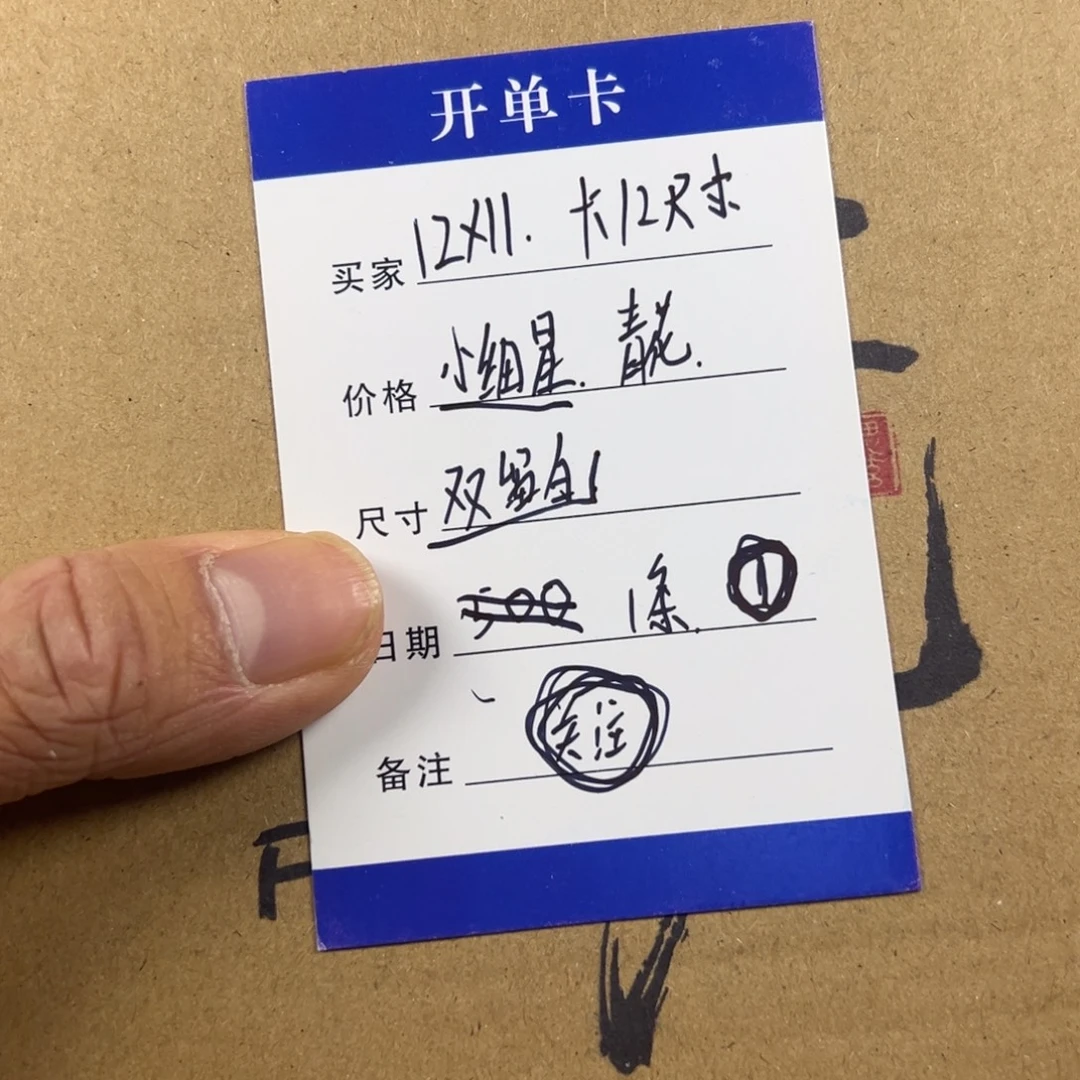 开单卡
买家 12X11. 卡12尺寸
价格 小细星. 青花.
尺寸 双
日期 1条. 1
备注 关注